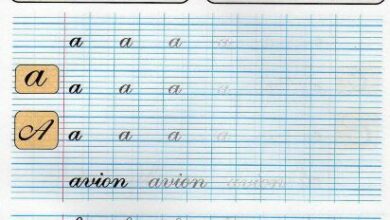 a a a a
a a a a a
A a a a a
avion avion avion